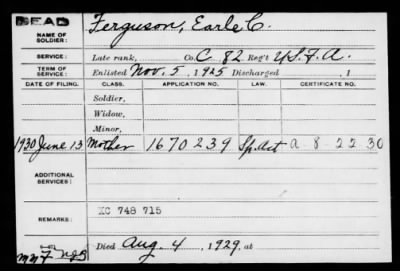 DEAD
NAME OF SOLDIER: Ferguson, Earle C.
SERVICE: Late rank, Co. C 82 Reg't U.S.F.A.
TERM OF SERVICE: Enlisted Nov. 5, 1925 Discharged , 1
DATE OF FILING. CLASS. APPLICATION NO. LAW. CERTIFICATE NO.
Soldier,
Widow,
Minor,
1930 June 13 Mother 1670239 Sp. Act a-8-22-30
ADDITIONAL SERVICES:
REMARKS: XC 748 715
Died Aug. 4, 1929, at